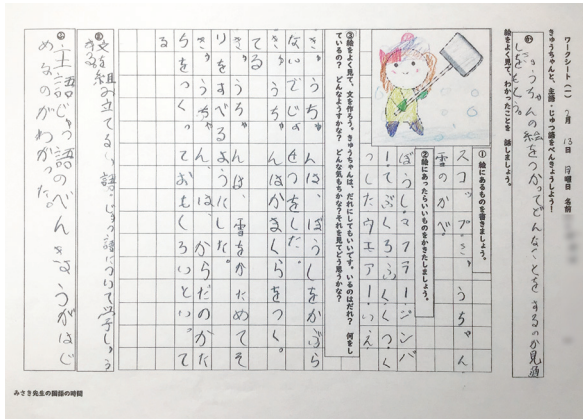 ワークシート(一) 月 13日 曜日 名前
きゅうちゃんと、主語・じゅつ語をべんきょうしよう!
絵をよく見て、わかったことを 話しましょう。
きゅうちゃんの絵をつかってどんなことをするのか見通
しをもとう。
①絵にあるものを書きましょう。
スコップ・きゅうちゃん
雪のかべ。
②絵にあったらいいものをかきたしましょう。
ぼうし。マフラー・ジンバ
ー・てぶくろ・ふく・くつ・く
つした・ウエアー・いえ
③絵をよく見て、文を作ろう。きゅうちゃんは、だれにしてもいいです。いるのはだれ? 何をし
ているの? どんなようすかな? どんな気もちかな?それを見てどう思うかな?
きゅうちゃんは、ぼうしをかぶら
ないで
きゅうちゃんはかまくらをつく
てる。
きゅうちゃんは、雪をかためてそ
りをすべるようにした。
きゅうちゃん、は、からだのかた
ちをつくっておもしろいといって
る
文を組み立てる主語・じゅつ語について学しゅう
する
主語じゅつ語のべんきょうがはじ
めなのがわかった。
みさき先生の国語の時間